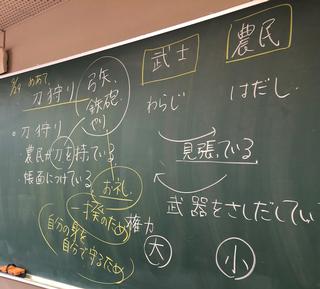 めあて
刀狩り
弓矢、
鉄砲
やり
武士
農民
わらじ
はだし
・刀狩り
農民が刀を持っている
帳面につけている
見張っている
お礼
一揆のため
自分の身を
自分で守るため
権力
大
小
武器をさしだしてい